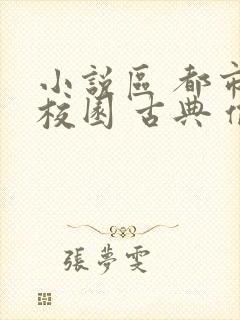 小說區 都市
校園 古典
張夢雯